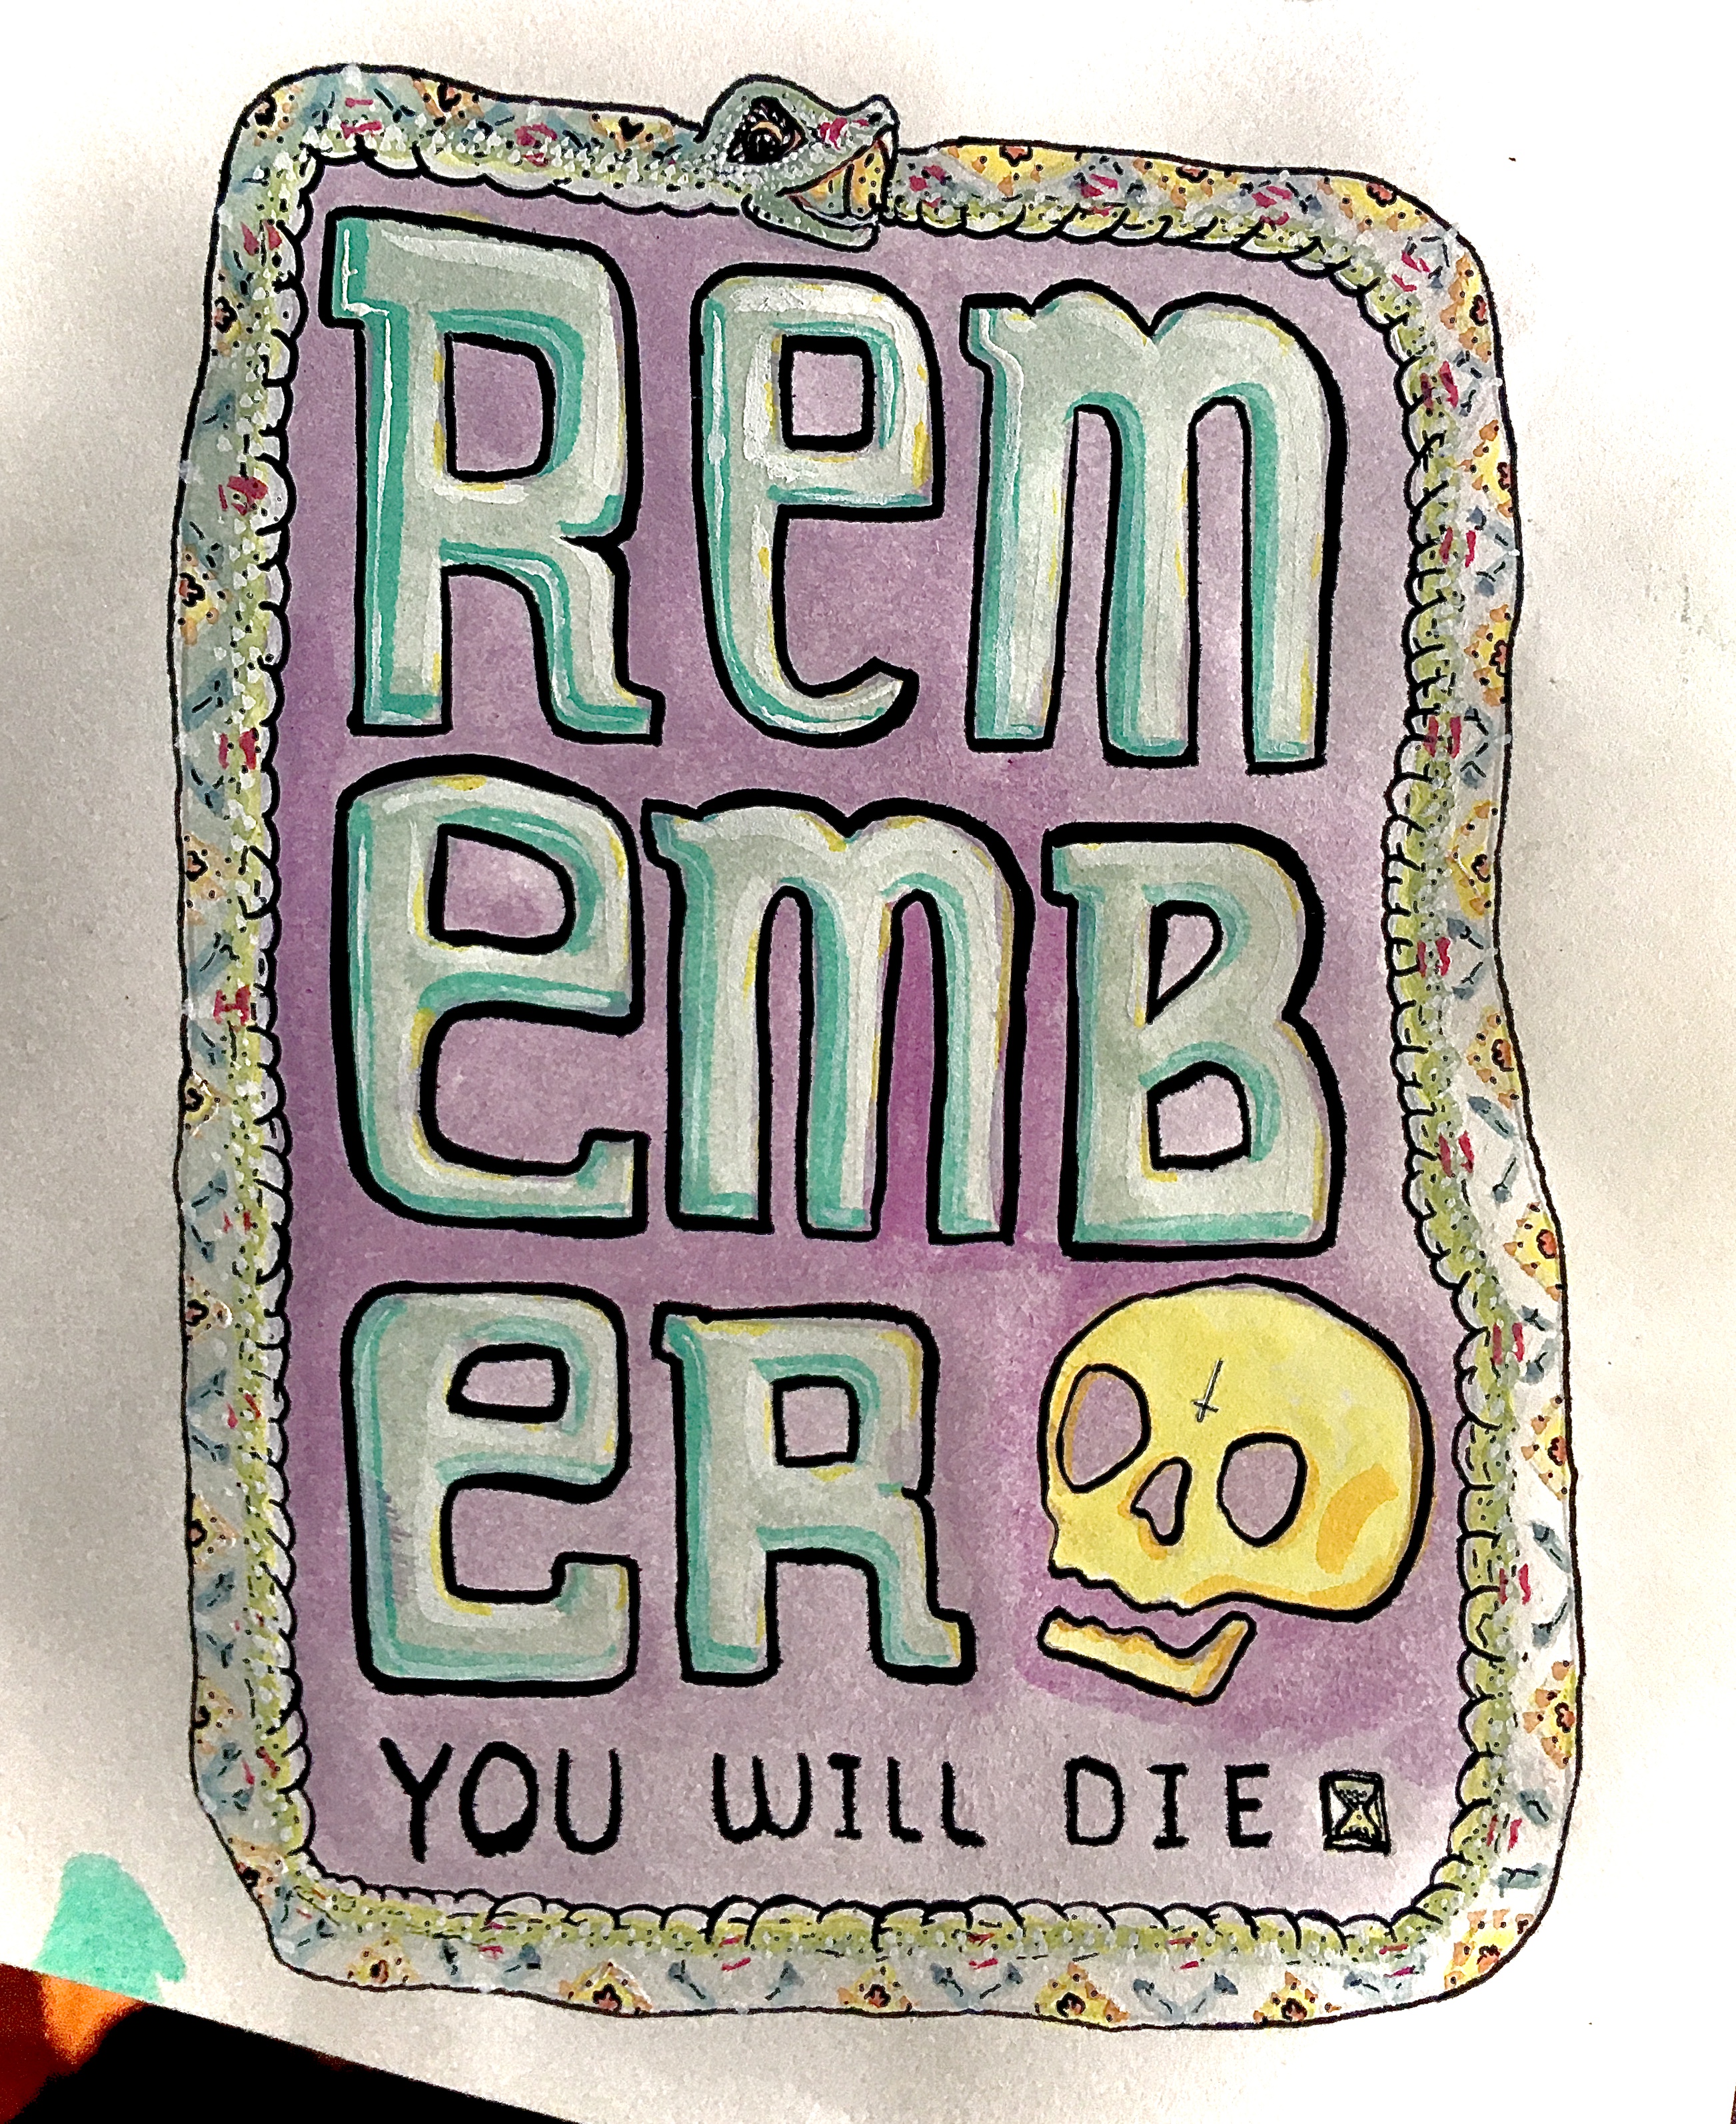 Rem
emB
eR
YOU WILL DIE